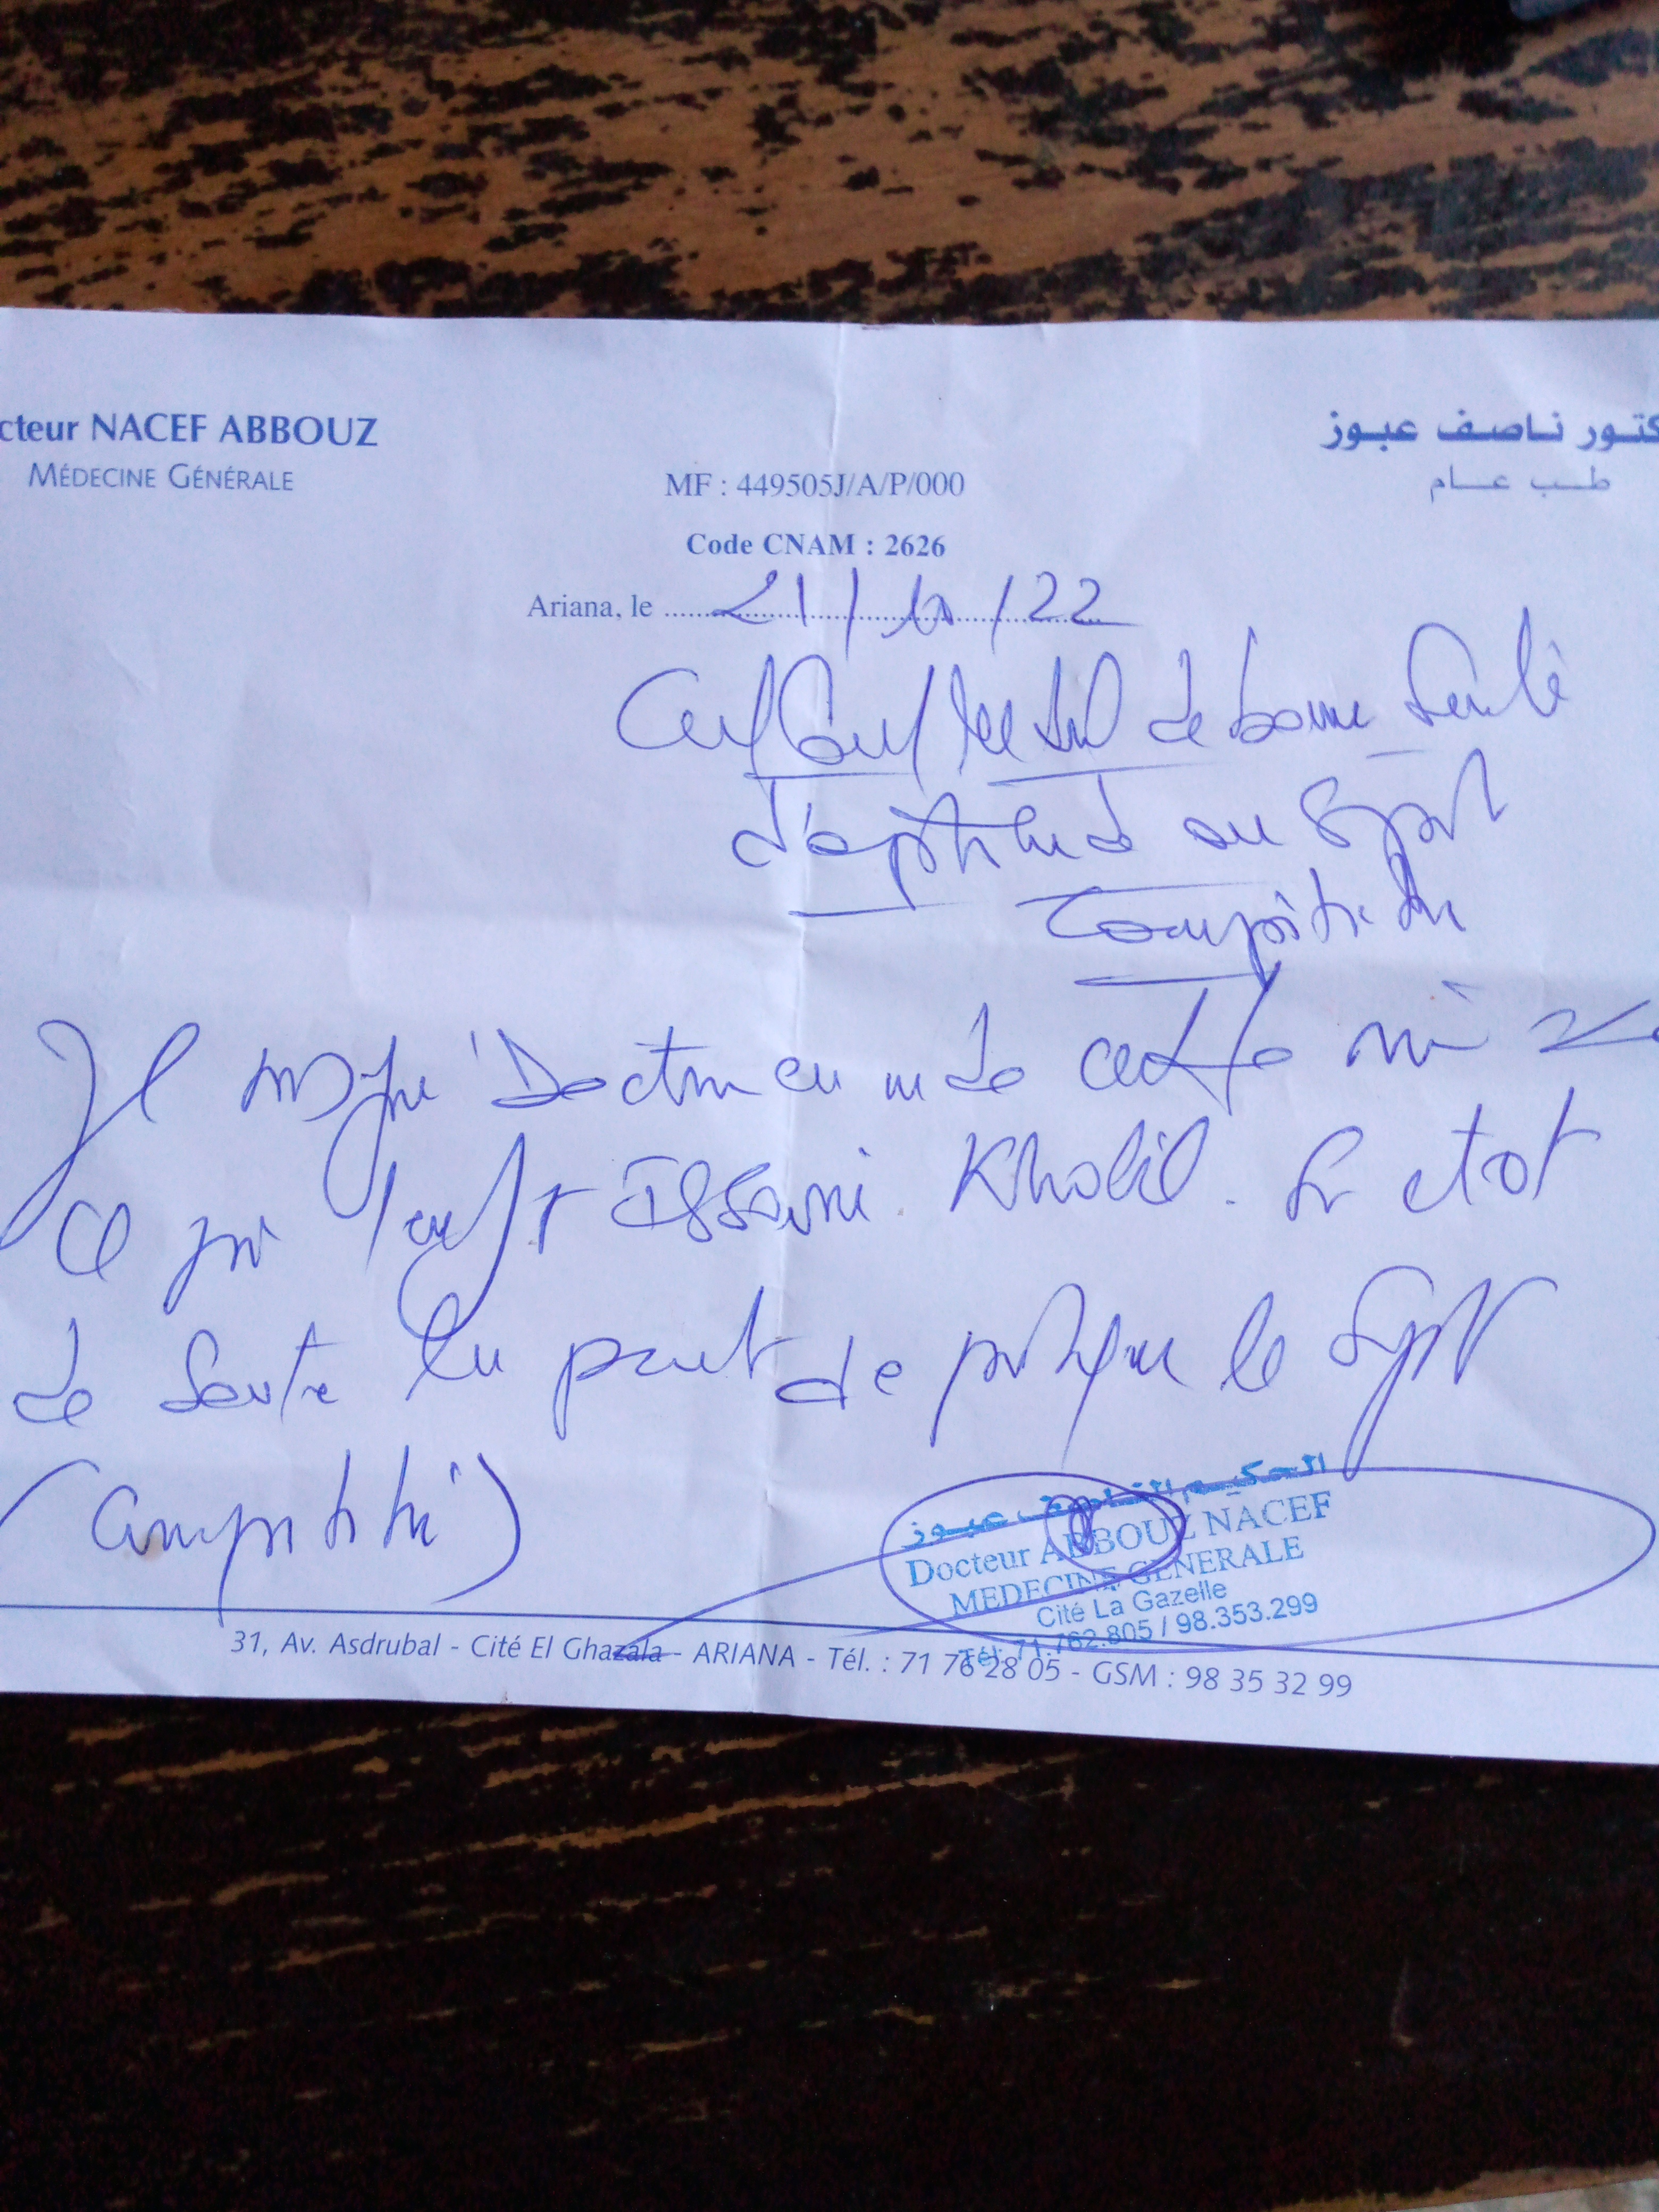 cteur NACEF ABBOUZ
MÉDECINE GÉNÉRALE
كتور ناصف عبوز
طب عام
MF : 449505J/A/P/000
Code CNAM : 2626
Ariana, le 21/10/22
de bonne Santé
d'aptitude au Sport
Compétition
Je Docteur en de
ce Issaoui Khalil. Son etat
de Sante lui permet de pratiquer le Sport
(Compétition)
الحكيم الناصف عبوز
Docteur ABBOUZ NACEF
MEDECINE GENERALE
Cité La Gazelle
Tél: 71.762.805 / 98.353.299
31, Av. Asdrubal - Cité El Ghazala - ARIANA - Tél. : 71 76 28 05 - GSM : 98 35 32 99